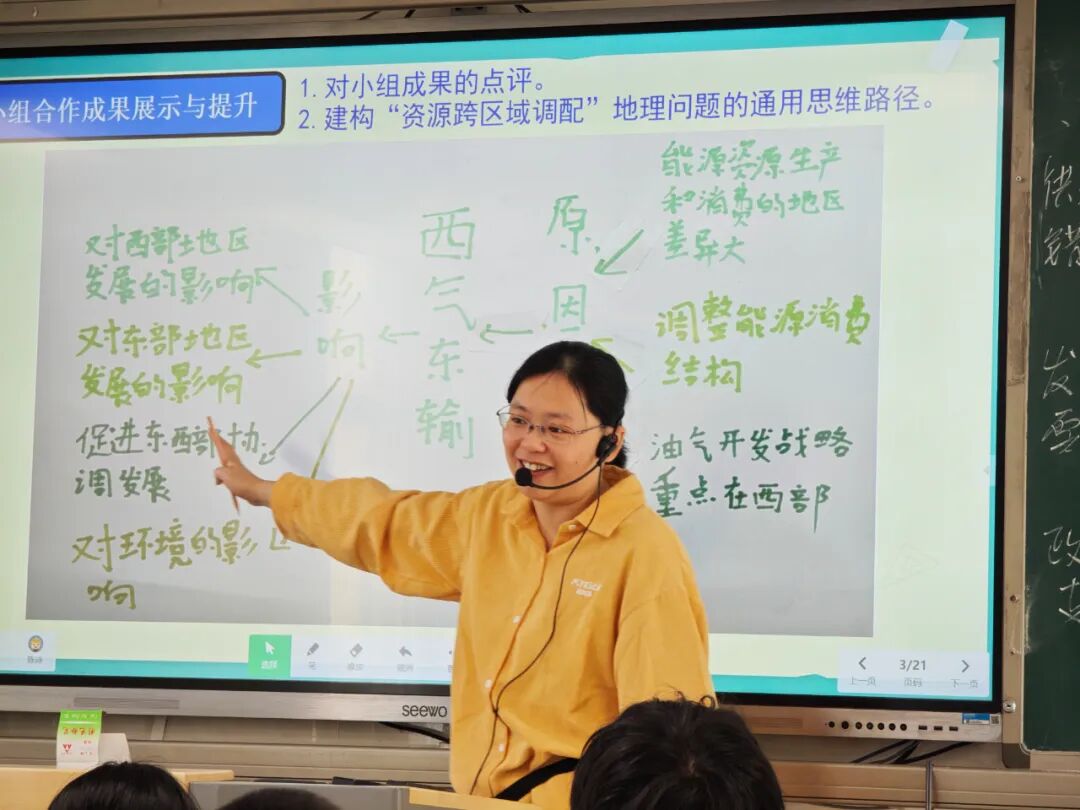 小组合作成果展示与提升
1. 对小组成果的点评。
2. 建构“资源跨区域调配”地理问题的通用思维路径。
能源资源生产
和消费的地区
差异大
原
因
调整能源消费
结构
油气开发战略
重点在西部
西
气
东
输
影
响
对西部地区
发展的影响
对东部地区
发展的影响
促进东西部协
调发展
对环境的影
响
选择
笔
3/21
上一页
页码
下一页
seewo
发
改